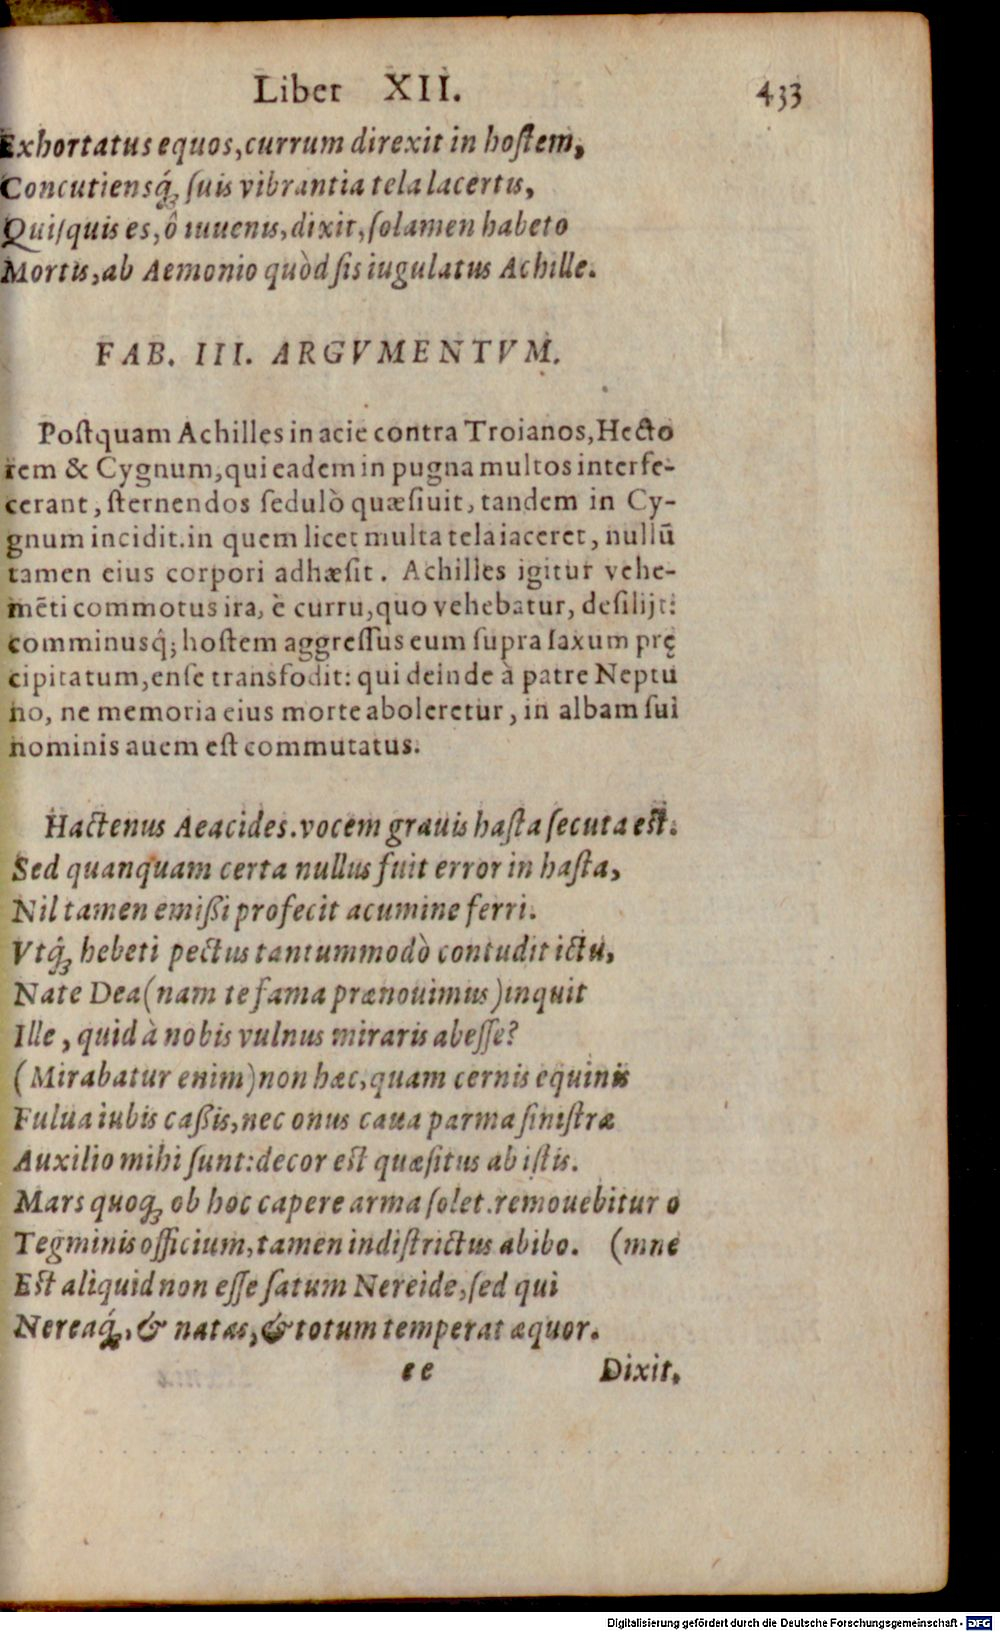 Liber XII. 433
Exhortatus equos, currum direxit in hoſtem,
Concutiensq́; ſuis vibrantia tela lacertis,
Quiſquis es, ô iuuenis, dixit, ſolamen habeto
Mortis, ab Aemonio quòd ſis iugulatus Achille.
FAB. III. ARGVMENTVM.
Poſtquam Achilles in acie contra Troianos, Hecto
rem & Cygnum, qui eadem in pugna multos interfe-
cerant, ſternendos ſedulò quæsiuit, tandem in Cy-
gnum incidit. in quem licet multa tela iaceret, nullũ
tamen eius corpori adhæsit. Achilles igitur vehe-
mẽti commotus ira, è curru, quo vehebatur, deſilijt:
comminusq́; hoſtem aggreſſus eum ſupra ſaxum prę
cipitatum, enſe transfodit: qui deinde à patre Neptu
no, ne memoria eius morte aboleretur, in albam ſui
nominis auem eſt commutatus.
Hactenus Aeacides. vocem grauis haſta ſecuta eſt.
Sed quanquam certa nullus fuit error in haſta,
Nil tamen emißi profecit acumine ferri.
Vtq́; hebeti pectus tantummodò contudit ictu,
Nate Dea (nam te fama prænouimus) inquit
Ille, quid à nobis vulnus miraris abeſſe?
(Mirabatur enim) non hæc, quam cernis equinis
Fulua iubis caßis, nec onus caua parma ſiniſtræ
Auxilio mihi ſunt: decor eſt quæsitus ab iſtis.
Mars quoq; ob hoc capere arma ſolet. remouebitur o
Tegminis officium, tamen indiſtrictus abibo. (mne
Eſt aliquid non eſſe ſatum Nereide, ſed qui
Nereaq́;, & natas, & totum temperat æquor.
ee Dixit.
Digitalisierung gefördert durch die Deutsche Forschungsgemeinschaft - DFG